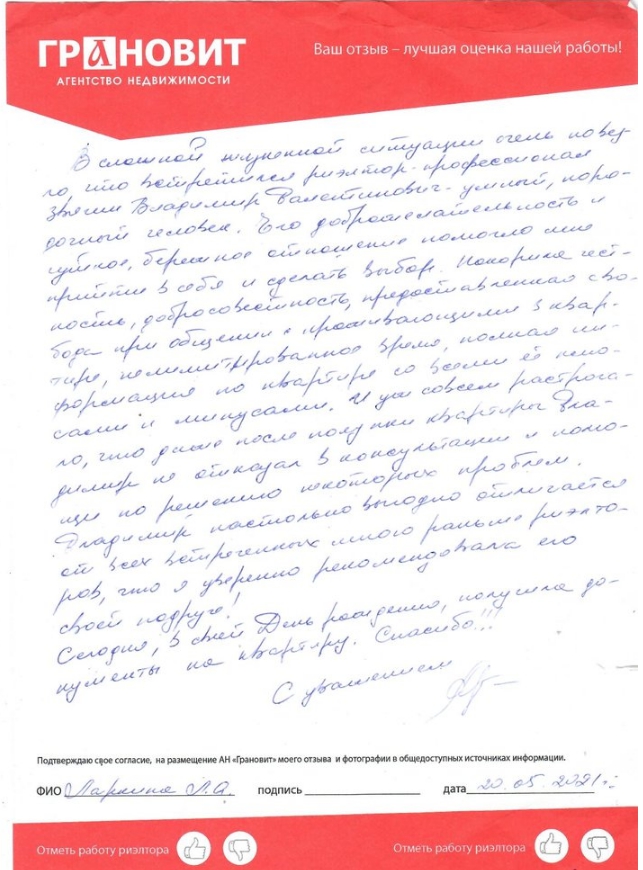 ГРАНОВИТ
АГЕНТСТВО НЕДВИЖИМОСТИ
Ваш отзыв – лучшая оценка нашей работы!
В сложной жизненной ситуации очень повез-
ло, что встретился риэлтор-профессионал
Владимир Валентинович - умный, поря-
дочный человек. Его доброжелательность и
чуткое, бережное отношение помогло мне
прийти в себя и сделать выбор. Покорила чест-
ность, добросовестность, предоставленная сво-
бода при общении с проживающими в квар-
тире, нелимитированное время, полная ин-
формация по квартире со всеми её плю-
сами и минусами. И уж совсем растрога-
ло, что даже после покупки квартиры Вла-
димир не отказал в консультации и помо-
щи по решению некоторых проблем.
Владимир настолько выгодно отличается
от всех встреченных мною раньше риэлто-
ров, что я уверенно рекомендовала его
своей подруге!
Сегодня, в свой День рождения, получила до-
кументы на квартиру. Спасибо!!!
С уважением
Подтверждаю свое согласие, на размещение АН «Грановит» моего отзыва и фотографии в общедоступных источниках информации.
ФИО Ларкина Л.А. подпись дата 20.05.2021г.
Отметь работу риэлтора Отметь работу риэлтора